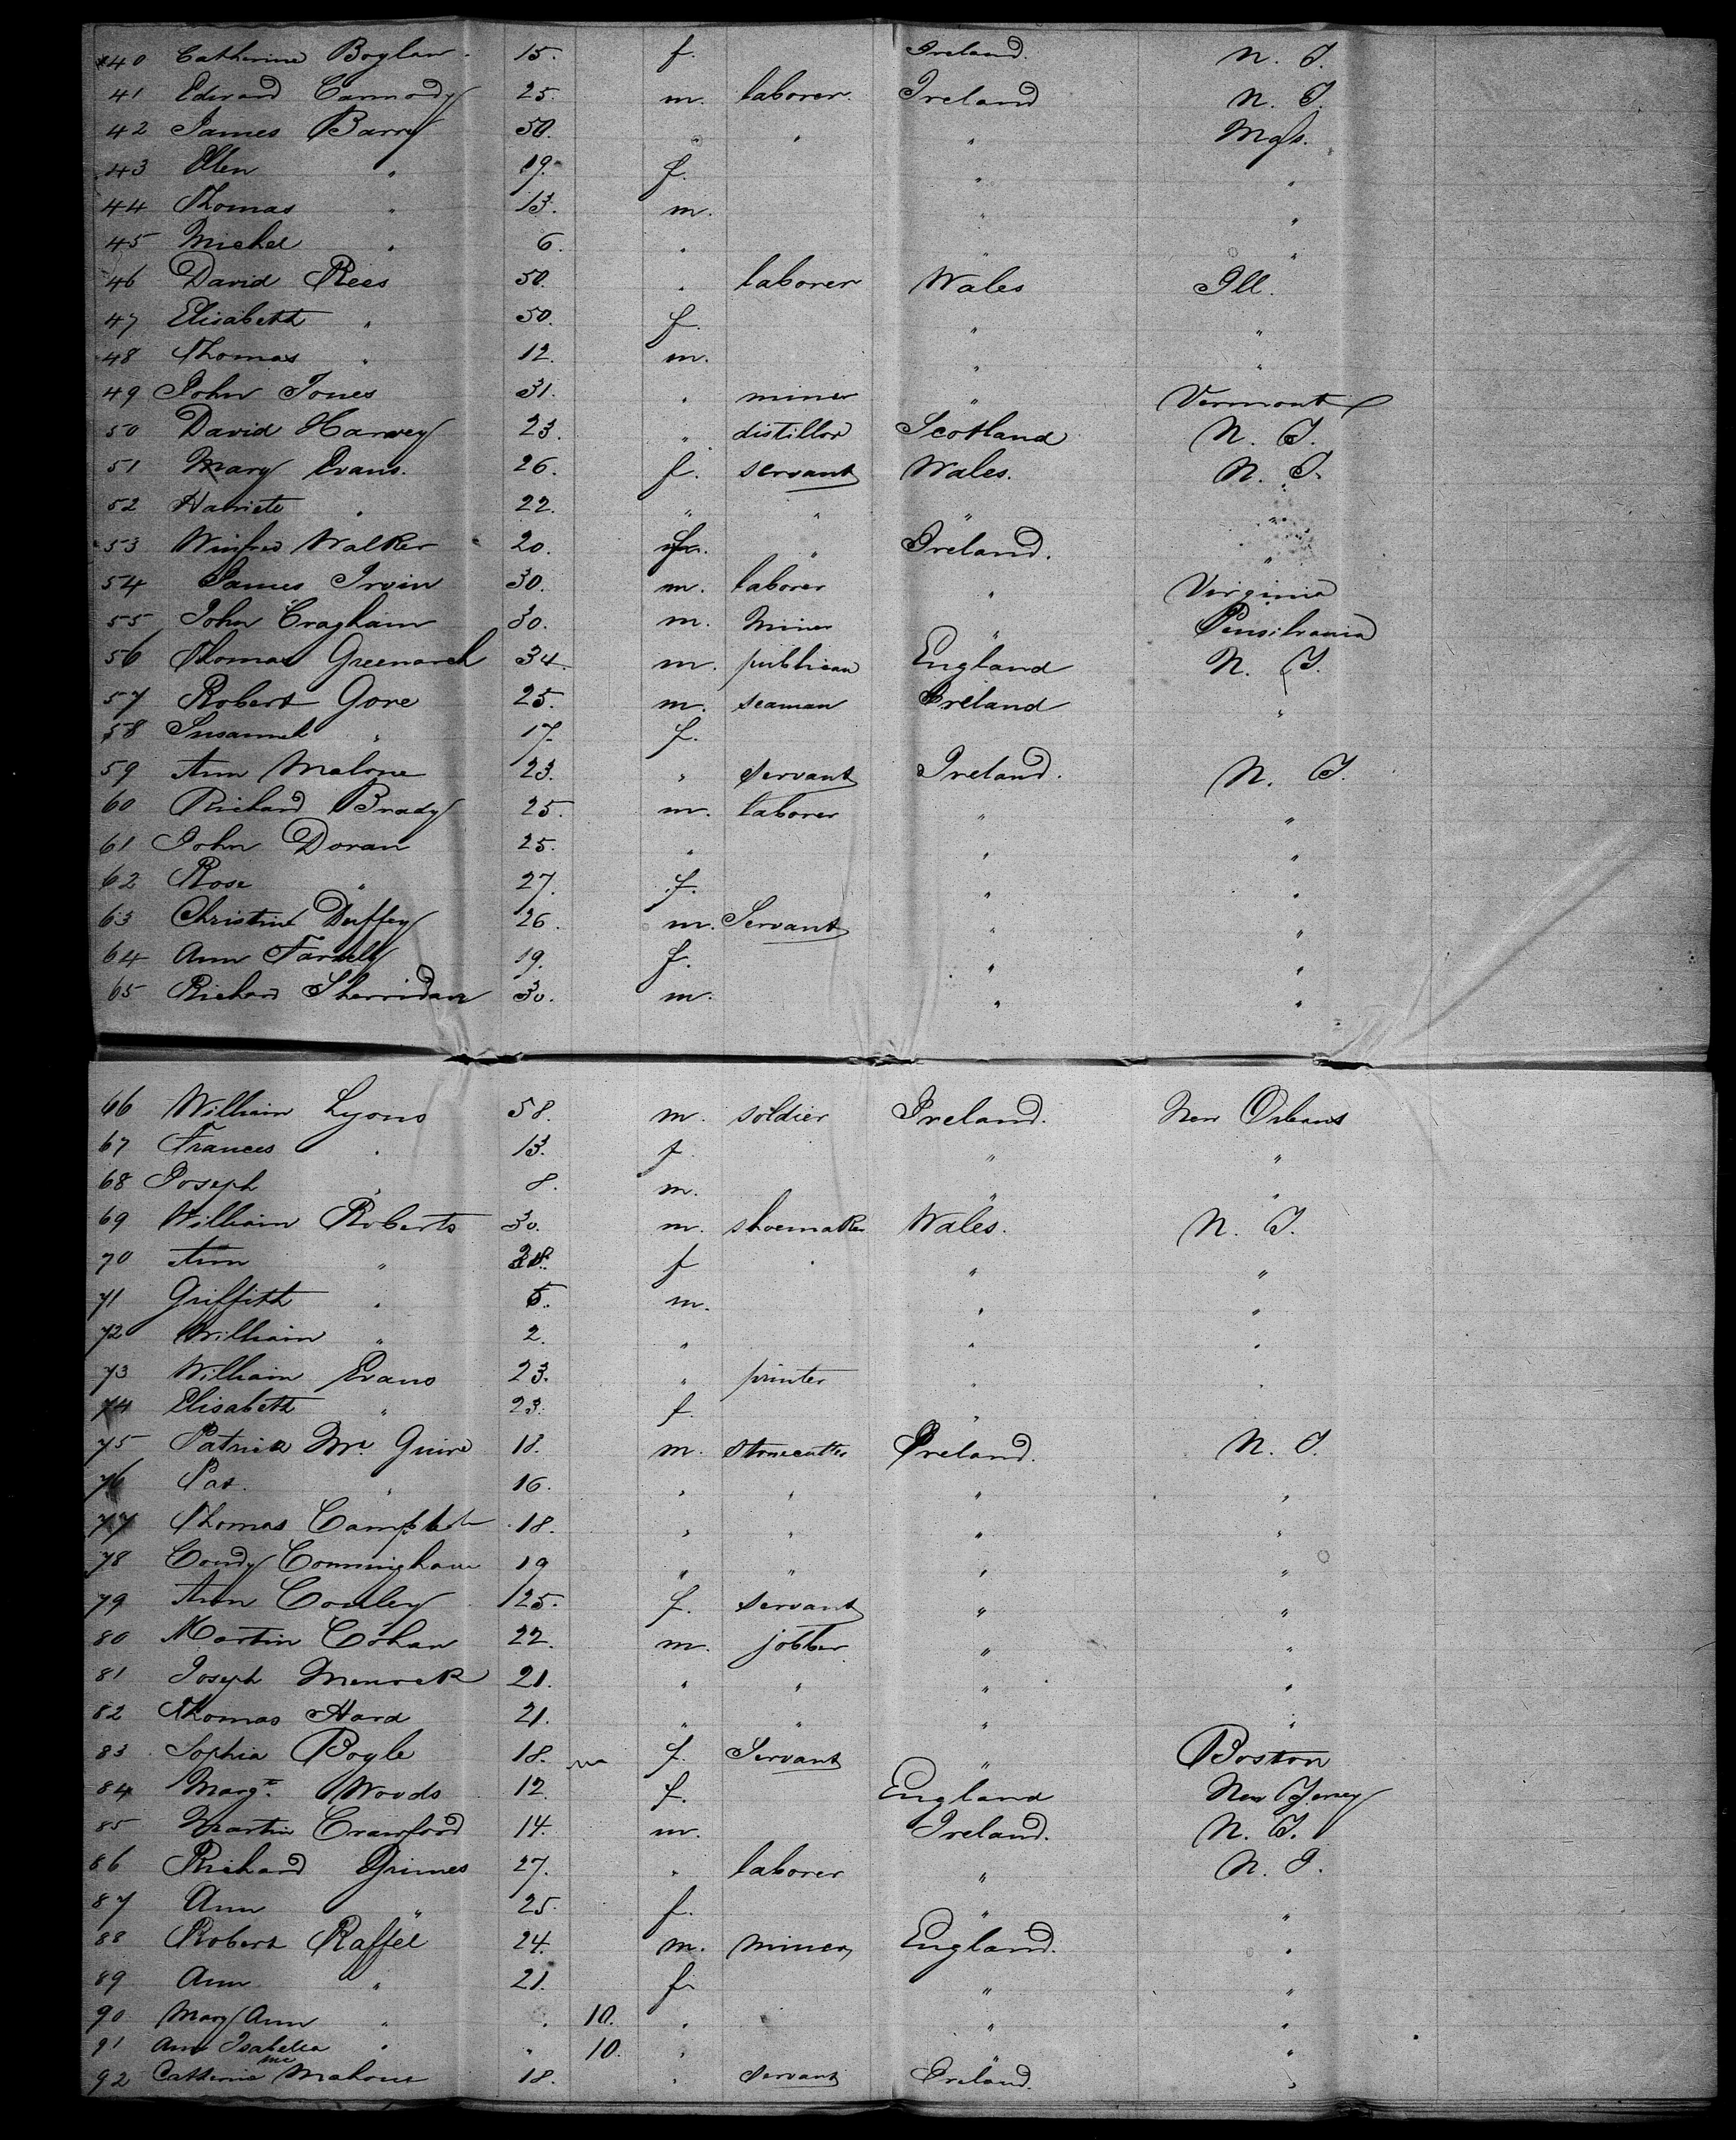 40 Catherine Boylan 15. f. Ireland. N. J.
41 Edward Carmody 25. m. laborer. Ireland N. J.
42 James Barry 50. " " " Mass.
43 Ellen " 19. f. " "
44 Thomas " 13. m. " "
45 Michel " 6. " " "
46 David Rees 50. " laborer Wales Ill.
47 Elisabeth " 50. f. " "
48 Thomas " 12. m. " "
49 John Jones 31. " miner " Vermont
50 David Harvey 23. " distillor Scotland N. J.
51 Mary Evans. 26. f. servant Wales. N. J.
52 Harriete " 22. " " " "
53 Winfred Walker 20. f. " Ireland. "
54 James Irvin 30. m. laborer " Virginia
55 John Cragham 30. m. Miner " Pensilvania
56 Thomas 34. m. publican England N. J.
57 Robert Gore 25. m. seaman Ireland "
58 Susannah " 17. f.
59 Ann Malone 23. " servant Ireland. N. J.
60 Richard Brady 25. m. laborer " "
61 John Doran 25. " " "
62 Rose " 27. f. " "
63 Christine Duffey 26. m. Servant " "
64 Ann Farrelly 19. f. " "
65 Richard Sherridan 30. m. " "
66 William Lyons 58. m. soldier Ireland. New Orleans
67 Frances " 13. f. " "
68 Joseph " 8. m. " "
69 William Roberts 30. m. shoemaker Wales. N. J.
70 Ann " f " " "
71 Griffith " m. " "
72 William " 2. " " "
73 William Evans 23. " printer " "
74 Elisabeth " 23. f. "
75 Patrick Mc Guire 18. m. stonecutter Ireland. N. J.
76 Pat. " 16. " " " "
77 Thomas Campbell 18. " " " "
78 Condy Conningham 19 " " " "
79 Ann Conley 25. f. servant " "
80 Martin Cohan 22. m. jobber " "
81 Joseph 21. " " " "
82 Thomas Hard 21. " " " "
83 Sophia Boyle 18. f. Servant " Boston
84 Margt. Woods 12. f. England New Jersey
85 Martin Crawford 14. m. Ireland. N. J.
86 Richard Grimes 27. " laborer " N. J.
87 Ann " 25. f. " "
88 Robert Raffel 24. m. miner England. "
89 Ann " 21. f. " "
90 Mary Ann " " 10. " " "
91 Ann Isabella " " 10. " " "
92 Catherine Mc Mahone 18. " servant Ireland. "